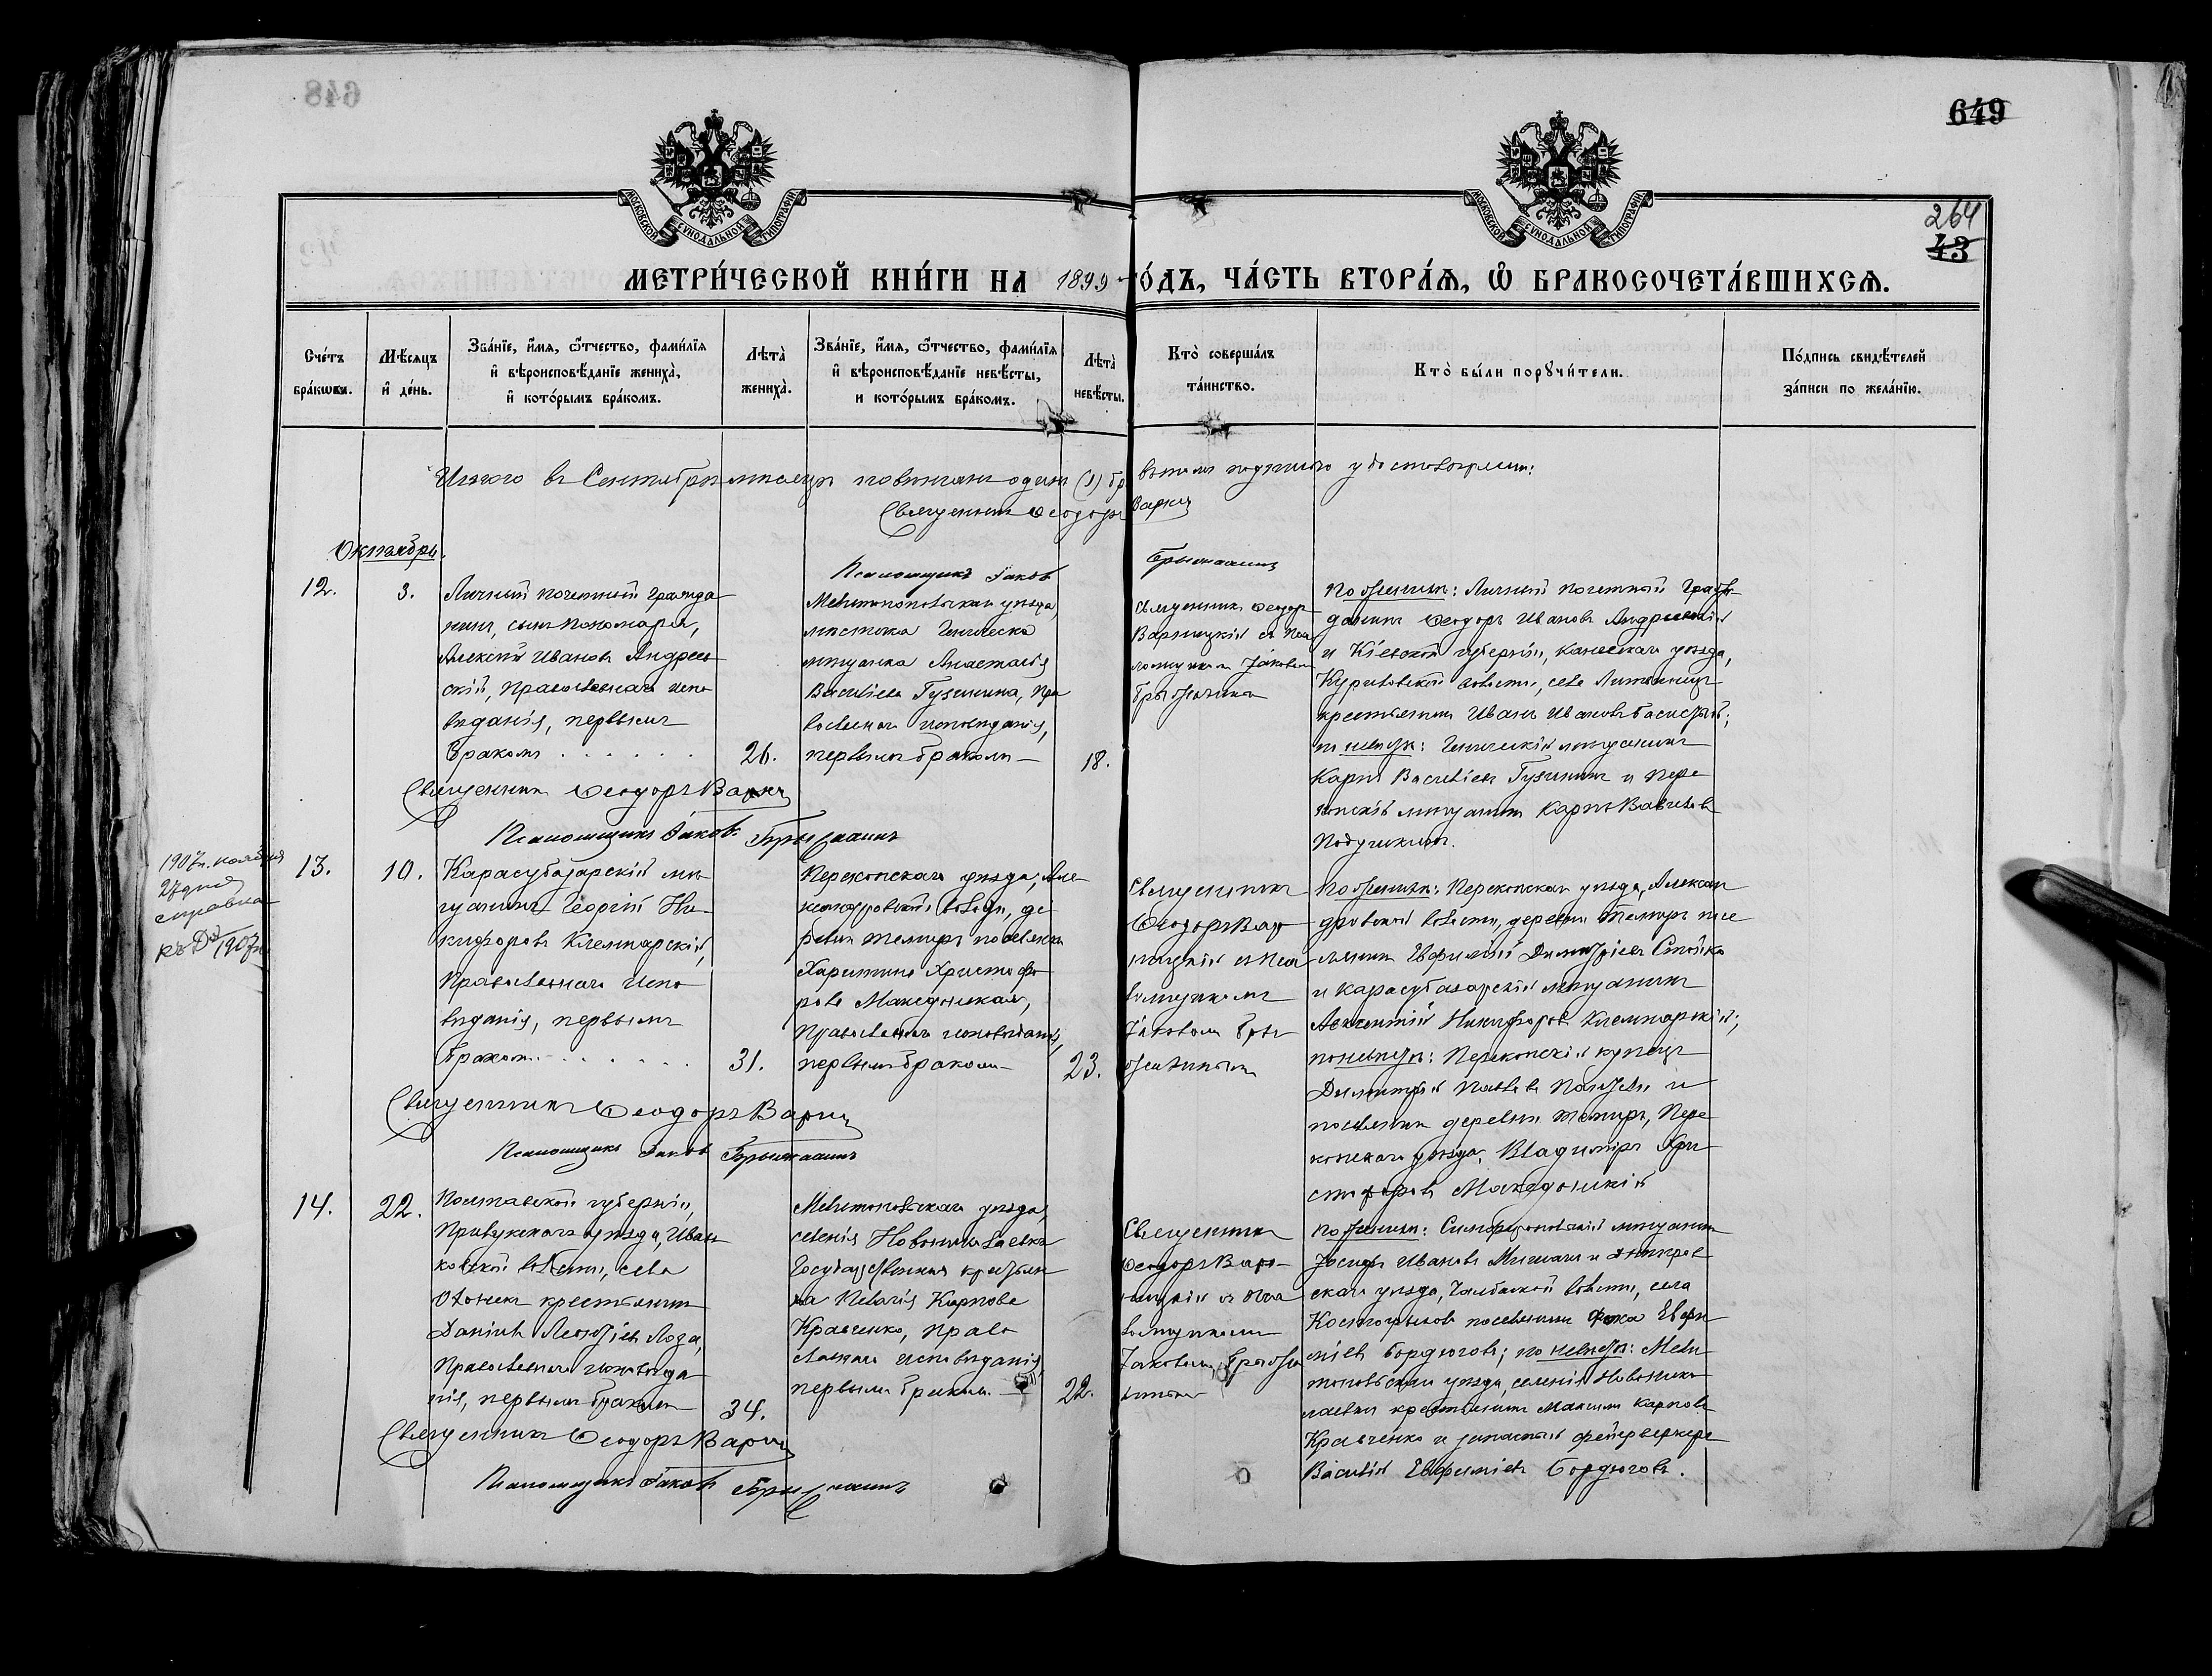 648
649
МОСКОВСКОЙ СУНОДАЛЬНОЙ ТИПОГРАФІИ
МОСКОВСКОЙ СУНОДАЛЬНОЙ ТИПОГРАФІИ
264
43
МЕТРИ́ЧЕСКОЙ КНИ́ГИ НА 1899 ГО́ДЪ, ЧА́СТЬ ВТОРА́Ѧ, Ѡ҆ БРАКОСОЧЕТА́ВШИХСѦ.
Сче́тъ бра́кωвъ.
Мѣ́сяцъ и҆ де́нь.
Зва́нїе, и҆́мя, ѻ҆́тчество, фами́лїя и҆ вѣроисповѣ́данїе жениха̀, и҆ кото́рымъ бра́комъ.
Лѣта̀ жениха̀.
Зва́нїе, и҆́мя, ѻ҆́тчество, фами́лїя и҆ вѣроисповѣ́данїе невѣ́сты, и кото́рымъ бра́комъ.
Лѣта̀ невѣ́сты.
Кто̀ соверша́лъ та́инство.
Кто̀ бы́ли порꙋчи́тели.
По́дпись свидѣ́телей за́писи по жела́нїю.
Итого въ Сентябрѣ мѣсяцѣ повѣнчанъ одинъ (1) бр
въ чемъ подписью удостовѣряемъ:
Священникъ Ѳеодоръ Варниц
Октябрь.
Псаломщикъ Іаковъ
12.
3.
Личный почетный гражда
нинъ, сынъ пономаря,
Алексѣй Ивановъ Андреев
скій, Православнаго испо
вѣданія, первымъ
бракомъ
26.
Мелитопольскаго уѣзда,
мѣстечка Геническа
мѣщанка Анастасія
Васильева Гузинина, пра
вославнаго исповѣданія,
первымъ бракомъ
18.
Священникъ Ѳеодоръ
Варницкій съ Пса
ломщикомъ Іаковомъ
По женихѣ: Личный почетный граж
данинъ Ѳеодоръ Ивановъ Андреевскій
и Кіевской губерніи, Каневскаго уѣзда,
Куриловской волости, села
крестьянинъ Иванъ Ивановъ
по невѣстѣ: Геническій мѣщанинъ
Карпъ Васильевъ Гузининъ и Пере
копскій мѣщанинъ Карпъ
Священникъ Ѳеодоръ Варниц
Псаломщикъ Іаковъ
1907г. ноября
27 дня
справка
13.
10.
Карасубазарскій мѣ
щанинъ Георгій Ни
кифоровъ Клемпарскій,
Православнаго испо
вѣданія, первымъ
бракомъ
31.
Перекопскаго уѣзда, Але
ксандровской волости, де
ревни Темиръ поселянка
Харитина Христофо
рова Македонская,
Православнаго исповѣданія,
первымъ бракомъ
23.
Священникъ
Ѳеодоръ Вар
ницкій съ Пса
ломщикомъ
Іаковомъ
По женихѣ: Перекопскаго уѣзда, Алексан
дровской волости, деревни Темиръ посе
лянинъ Евфимій Димитріевъ Стойко
и Карасубазарскій мѣщанинъ
Никифоровъ Клемпарскій;
по невѣстѣ: Перекопскій купецъ
Димитрій Павловъ
поселянинъ деревни Темиръ, Пере
копскаго уѣзда, Владиміръ Хри
стофоровъ Македонскій
Священникъ Ѳеодоръ Варниц
Псаломщикъ Іаковъ
14.
22.
Полтавской губерніи,
Прилукскаго уѣзда, Иван
ковской волости, села
крестьянинъ
Даніилъ Леонтіевъ Лоза,
Православнаго исповѣда
нія, первымъ бракомъ
34.
Мелитопольскаго уѣзда,
селенія Новониколаевки
Государственная крестьян
ка Пелагія Карпова
Кравченко, Право
славнаго исповѣданія,
первымъ бракомъ
22.
Священникъ
Ѳеодоръ Вар
ницкій съ Пса
ломщикомъ
Іаковомъ
По женихѣ: Симферопольскій мѣщанинъ
Іосифъ Ивановъ и Днѣпров
скаго уѣзда, волости, села
поселянинъ Фока Евфи
міевъ Бордюговъ; по невѣстѣ: Мели
топольскаго уѣзда, селенія Новонико
лаевки крестьянинъ Максимъ Карповъ
Кравченко и запасный фейерверкеръ
Василій Евфиміевъ Бордюговъ.
Священникъ Ѳеодоръ Варниц
Псаломщикъ Іаковъ